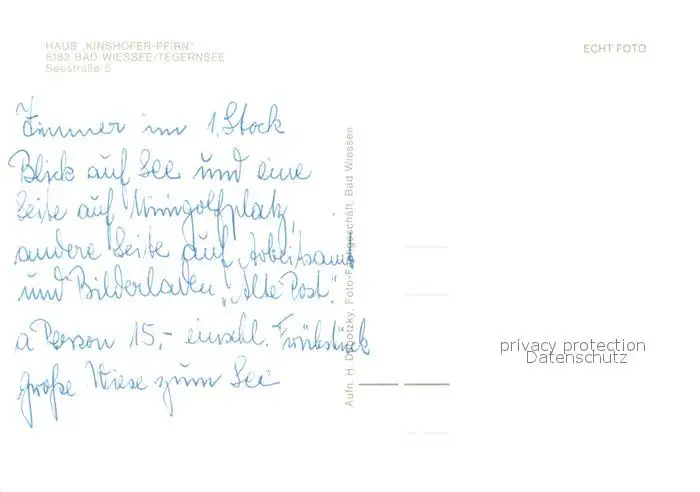 HAUS „KINSHOFER-PFIRN"
8182 BAD WIESSEE/TEGERNSEE
Seestraße 5
ECHT FOTO
Zimmer im 1. Stock
Blick auf See und eine
Seite auf Minigolfplatz,
andere Seite auf Arbeitsamt
und Bilderladen „Alte Post".
a Person 15,- einschl. Frühstück
große Wiese zum See
Aufn. H. Foto-Fachgeschäft, Bad Wiessee
privacy protection
Datenschutz